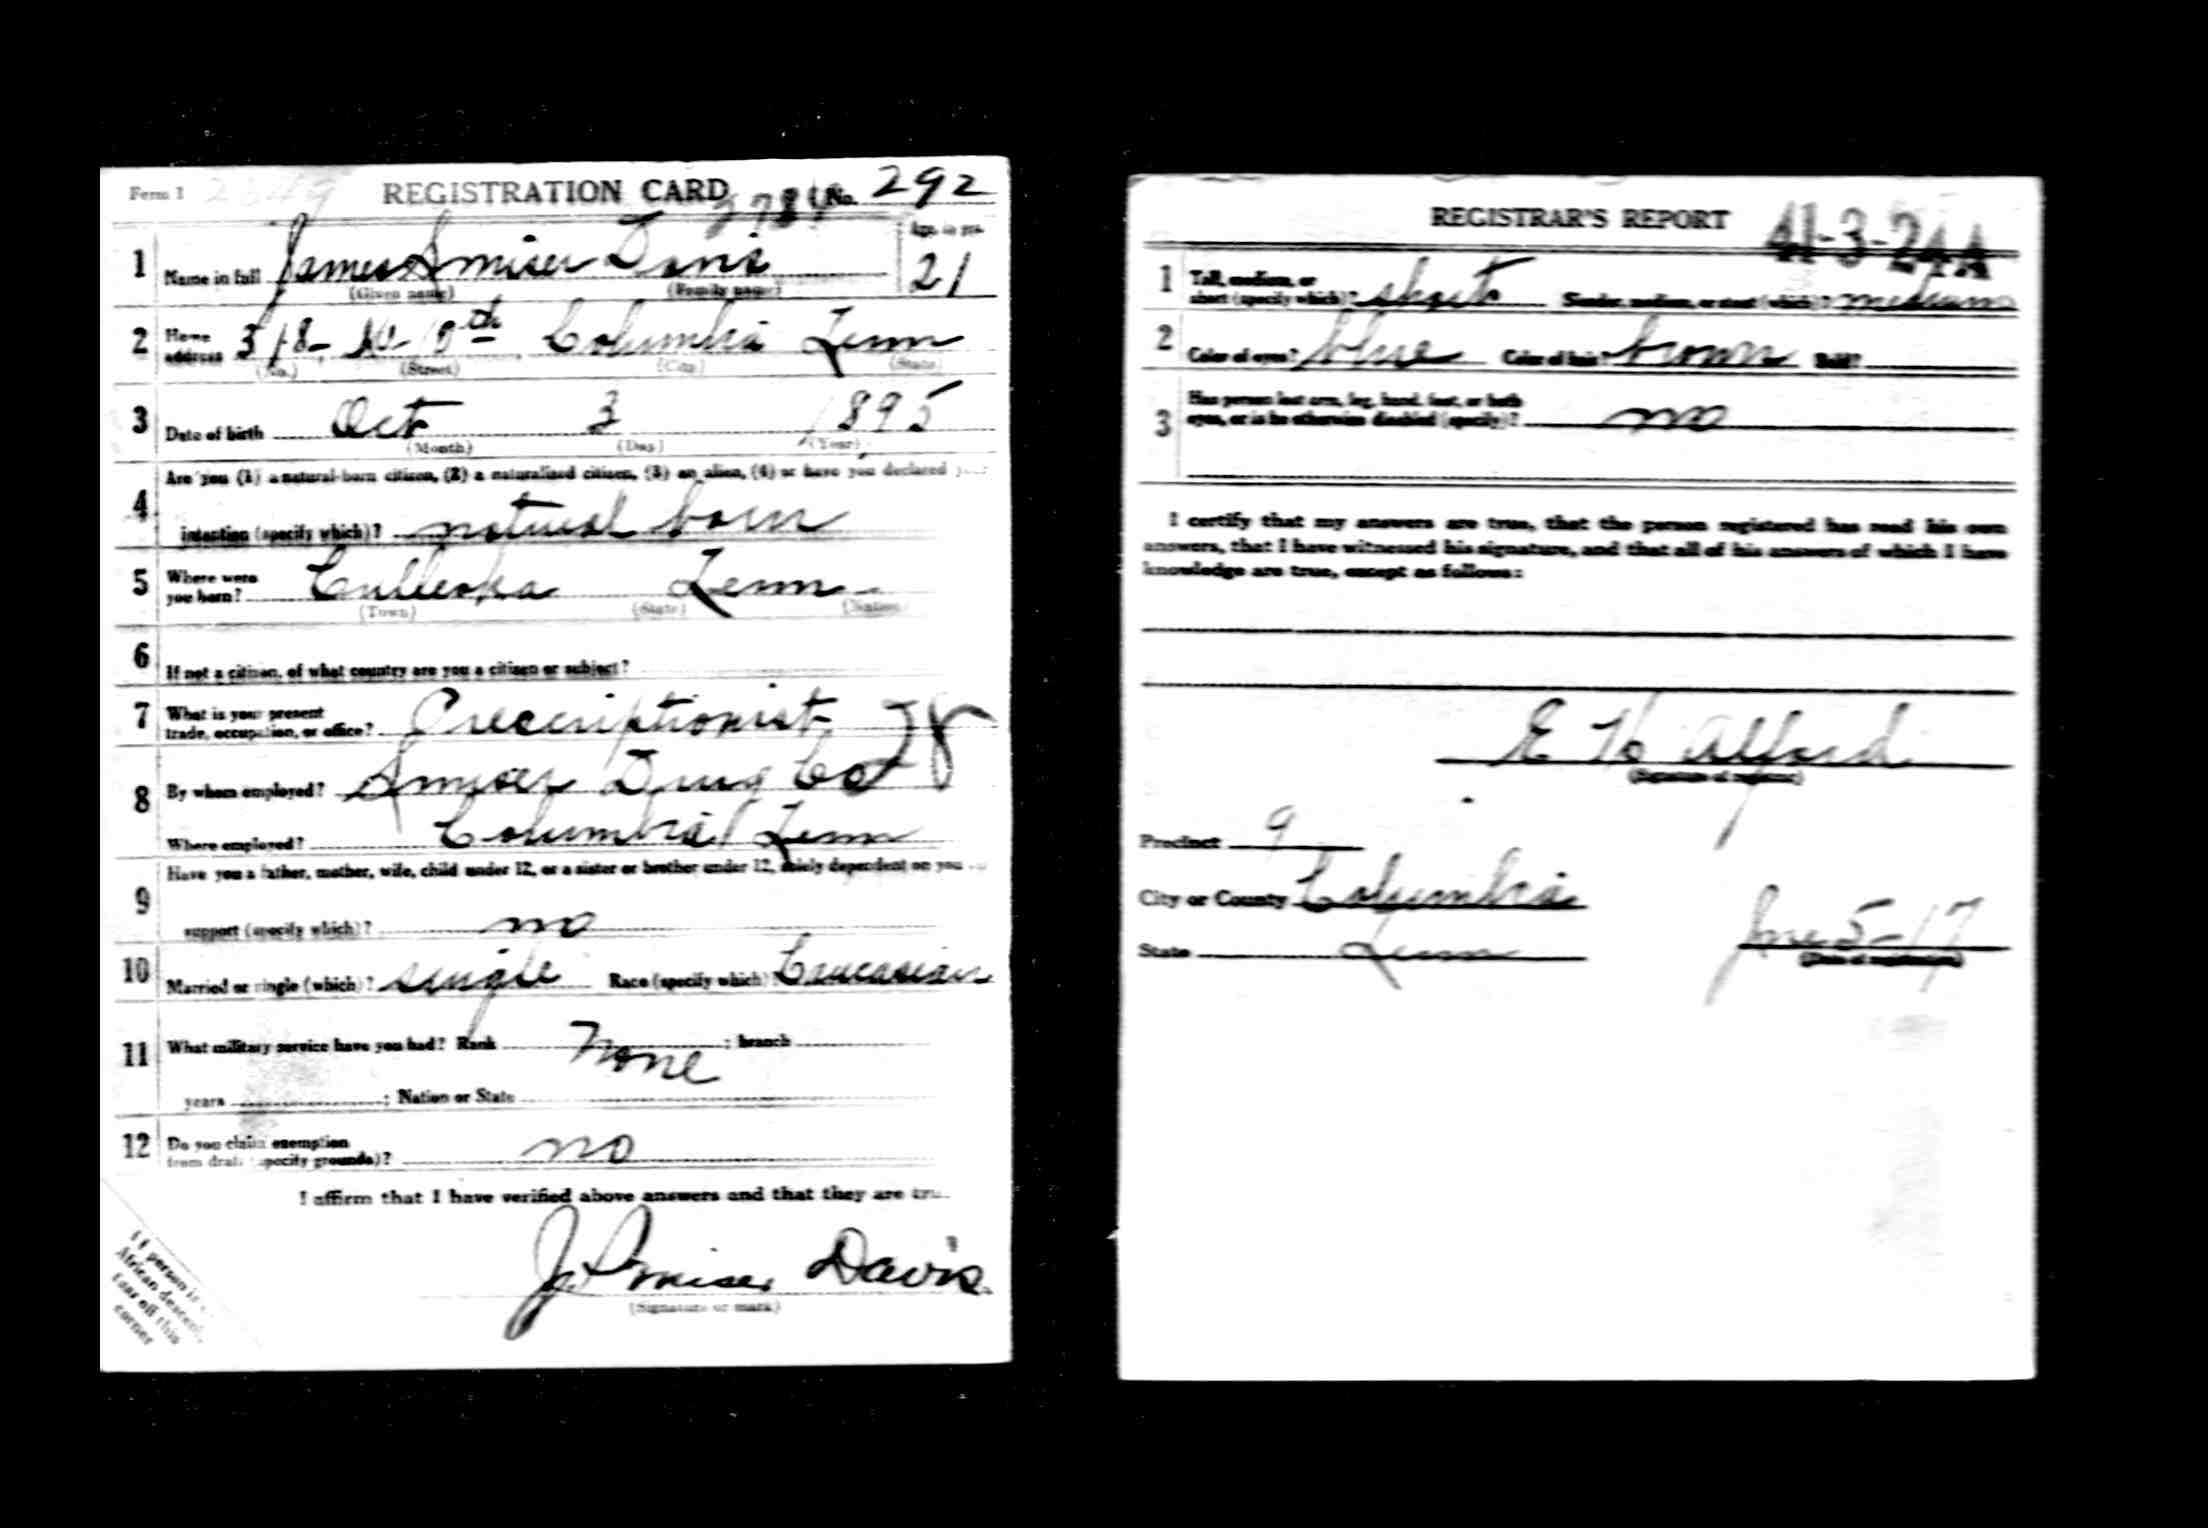 Form 1 REGISTRATION CARD No. 292
1 Name in full James Smiser Davis Age, in yrs. 21
(Given name) (Family name)
2 Home address 318 - W 10th Columbia Tenn
(No.) (Street) (City) (State)
3 Date of birth Oct 3 1895
(Month) (Day) (Year)
4 Are you (1) a natural-born citizen, (2) a naturalized citizen, (3) an alien, (4) or have you declared your
intention (specify which)? natural born
5 Where were you born? Culleoka Tenn
(Town) (State) (Nation)
6 If not a citizen, of what country are you a citizen or subject?
7 What is your present trade, occupation, or office? Prescriptionist 28
8 By whom employed? Smiser Drug Co
Where employed? Columbia Tenn
9 Have you a father, mother, wife, child under 12, or a sister or brother under 12, solely dependent on you
support (specify which)? no
10 Married or single (which)? single Race (specify which)? Caucasian
11 What military service have you had? Rank None ; branch
years ; Nation or State
12 Do you claim exemption from draft (specify grounds)? no
I affirm that I have verified above answers and that they are true.
J. Smiser Davis
(Signature or mark)
If person is
African descent,
tear off this
corner
REGISTRAR'S REPORT 41-3-24 A
1 Tall, medium, or short (specify which)? short Slender, medium, or stout (which)? medium
2 Color of eyes? blue Color of hair? brown Bald?
3 Has person lost arm, leg, hand, foot, or both
eyes, or is he otherwise disabled (specify)? no
I certify that my answers are true, that the person registered has read his own
answers, that I have witnessed his signature, and that all of his answers of which I have
knowledge are true, except as follows:
E Alford
(Signature of registrar)
Precinct 9
City or County Columbia
State Tenn June 5-17
(Date of registration)